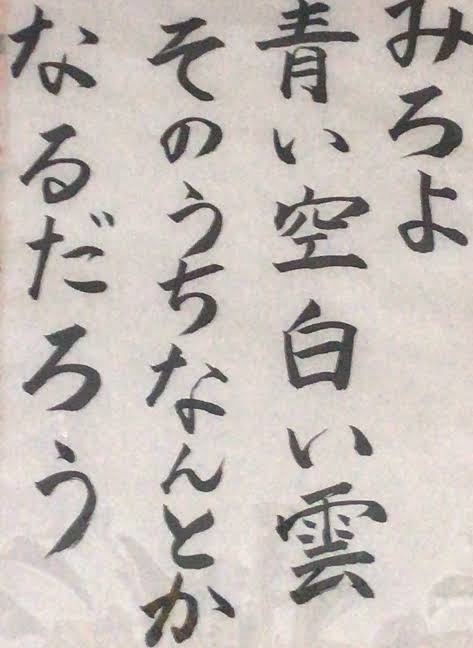 みろよ
青い空白い雲
そのうちなんとか
なるだろう